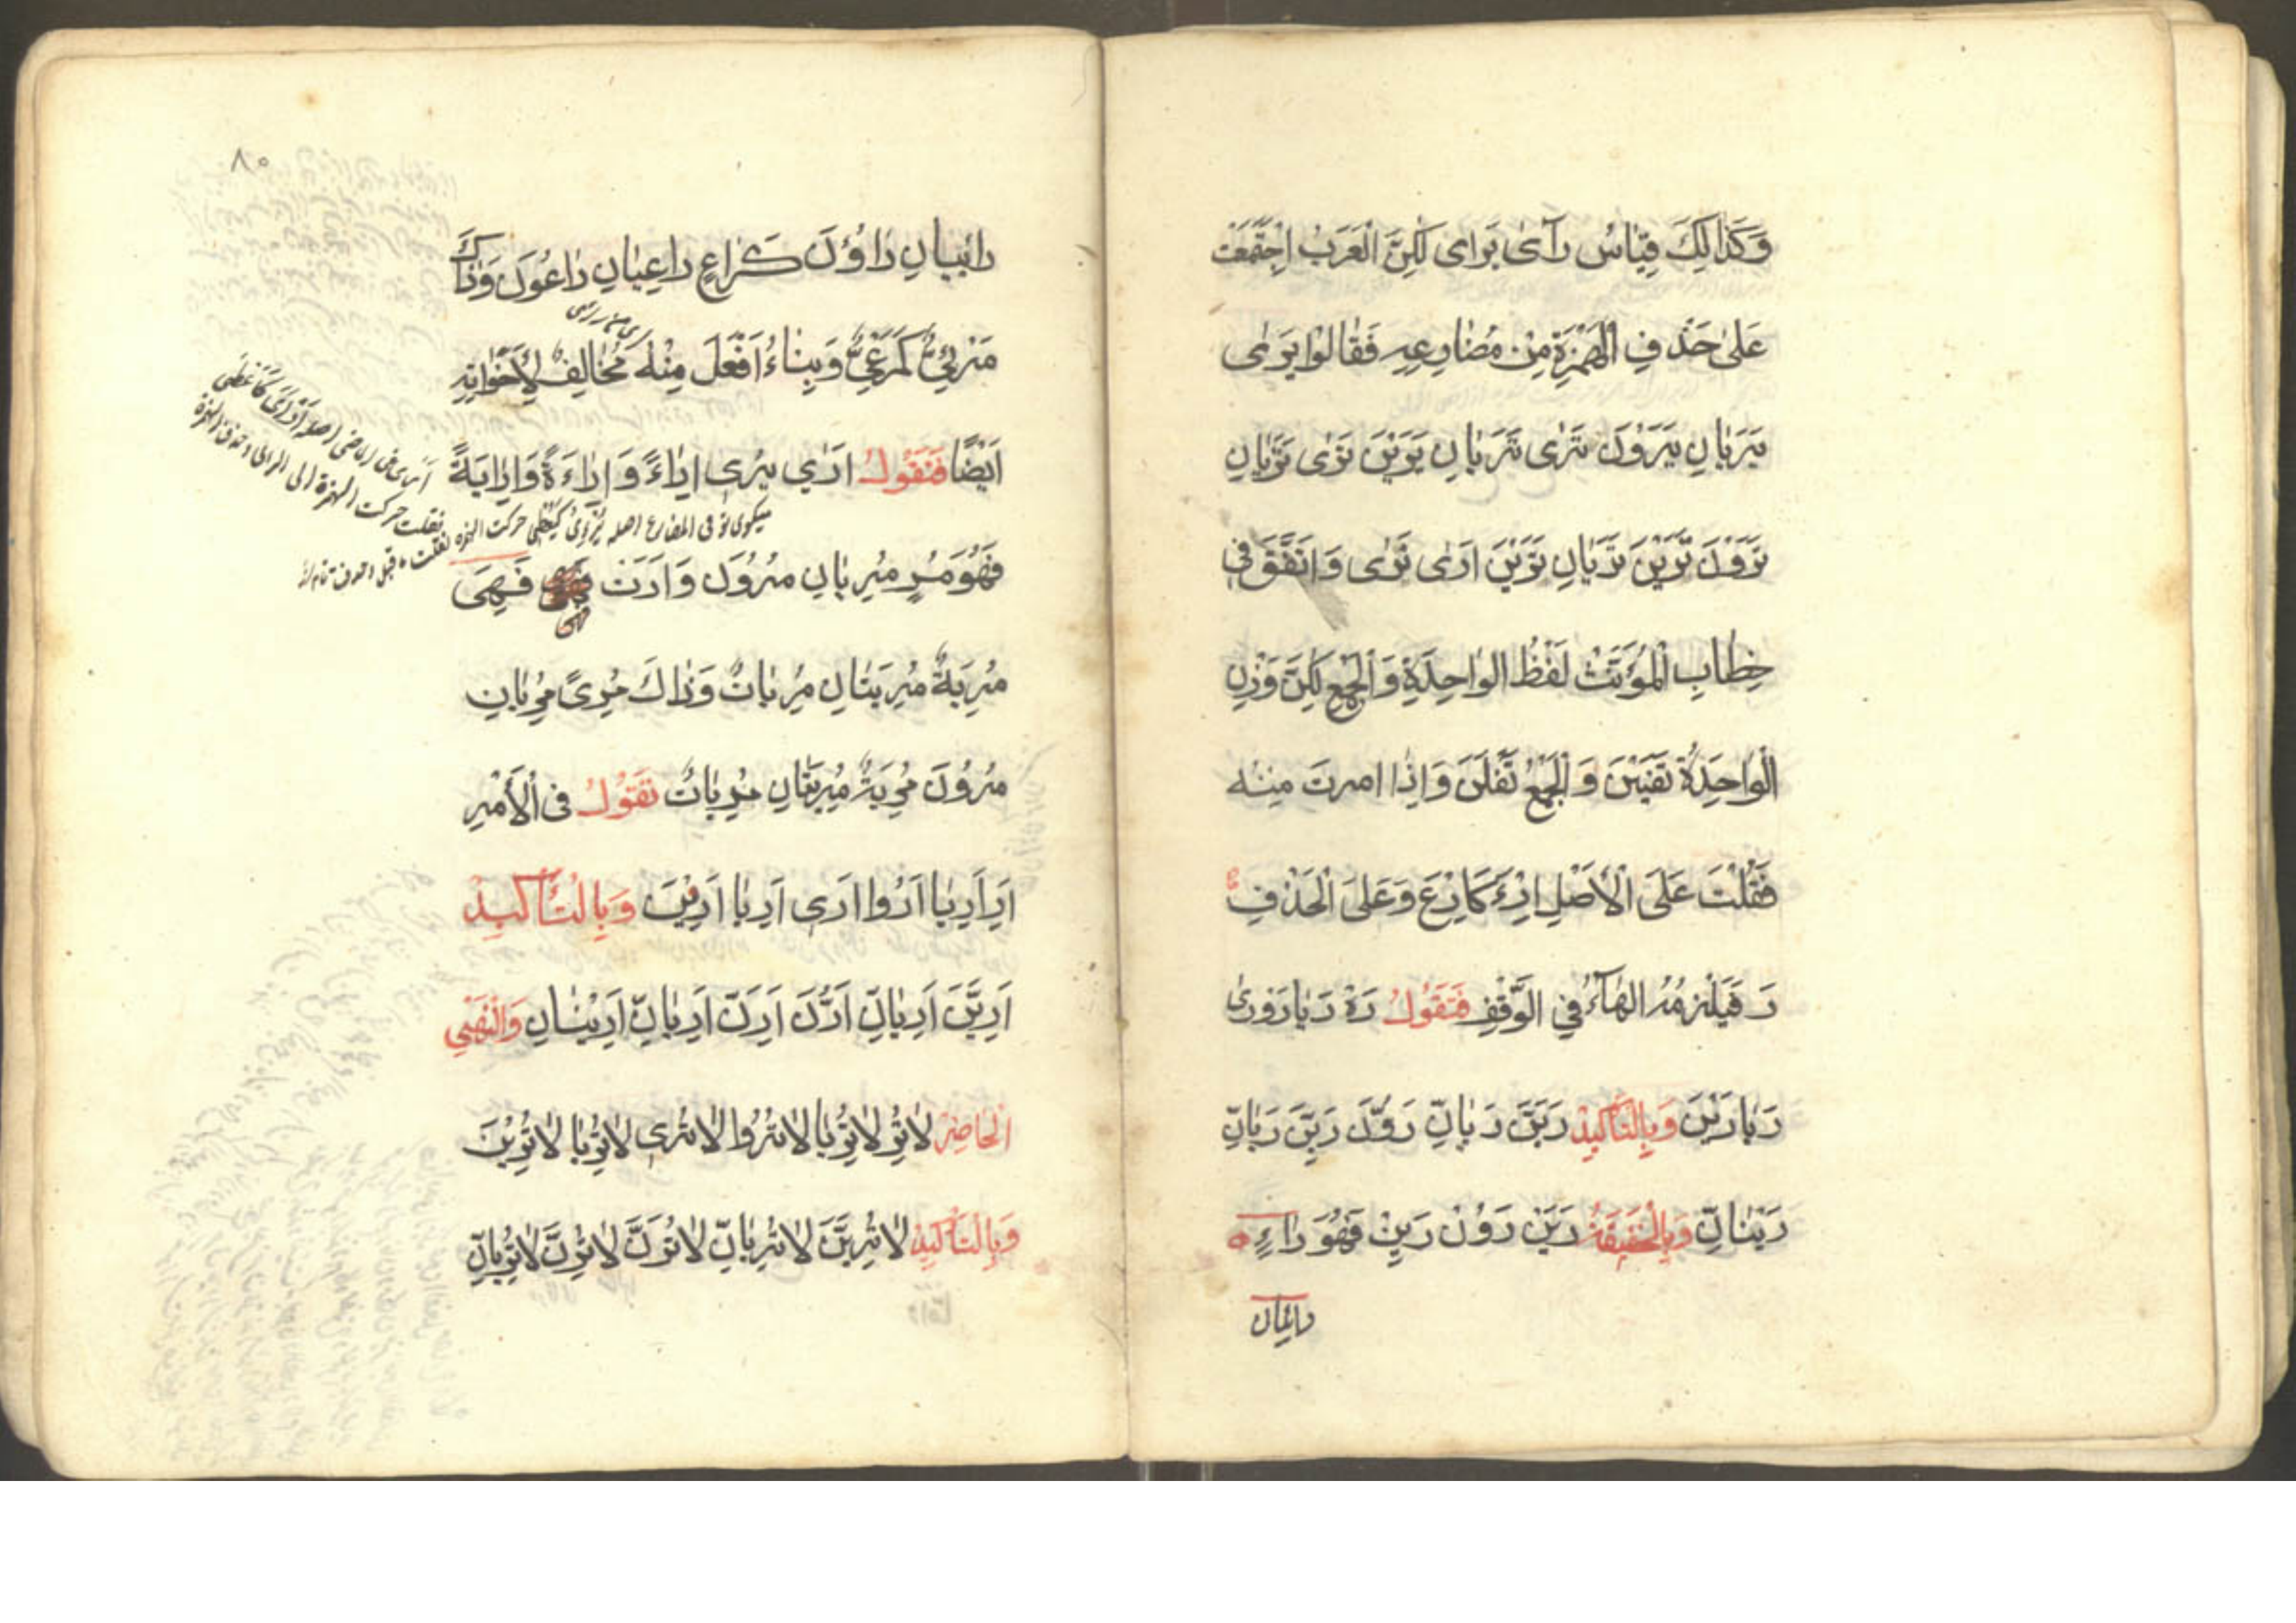 وَكَذٰالِكَ قِيَاسُ رَآى يَرْاى لٰكِنَّ الْعَرَبَ اجْتَمَعَتْ
عَلىٰ حَذْفِ الْهَمْزَةِ مِنْ مُضَارِعِهِ فَقَالُوْا يَرٰى
يَرَيٰانِ يَرَوْنَ تَرٰى تَرَيٰانِ يَرَيْنَ تَرٰى تَرَيٰانِ
تَرَوْنَ تَرَيْنَ تَرَيٰانِ تَرَيْنَ اَرٰى نَرٰى وَاتَّفَقَ فى
خِطٰابِ الْمُؤَنَّثْ لَفْظُ الوٰاحِدَةِ وَالْجَمْعِ لٰكِنَّ وَزْنِ
الْوٰاحِدَةُ تَفَيْنَ وَالْجَمْعُ تَفَلْنَ وَاِذٰا امرتَ مِنْه
فَقُلْتَ عَلَى الْاَصْلِ اِرْءَ كَاِرْعَ وَعَلىَ الْحَذْفِ
رَ فَيَلْزمُهُ الهٰآءُ في الْوَقْفِ فَتَقُولُ رَهْ رَيٰا رَوْ رى
رَيٰا رَيْنَ وَبِالتَاكيدْ رَيَنَّ رَيٰانِّ رَوُنَّ رَيِنَّ رَيٰانِّ
رَيْنٰانِّ وَبِالْخَفيفَةِ رَيَنْ رَوُنْ رَيِنْ فَهُوَ رٰاءٍ
رائيان
٨٠
رائيانِ رٰاؤُنَ كَرٰاعٍ راعِيٰانِ رٰاعُونَ وَذٰاكَ
مَرْئِيٌّ كَمَرْعِيٌّ وَبِنٰاءُ اَفْعَلَ مِنْهُ مُخٰالِفٌ لِاَخَوٰاتِهِ
اَيْضًا فَتَقُولُ ارٰي يُرى اِرٰاءً وَاِرٰاءَةً وَاِرٰايَةً
فَهُوَ مُرٍ مُرِيٰانِ مُرُونَ وَاَرَتْ فَهِىَ
مُرِيَةٌ مُرِيَتٰانِ مُرِيٰاتٌ وَذٰاكَ مُرىً مُرَيٰانِ
مُرَوْنَ مُرَيَةٌ مُرَيَتٰانِ مُرَيٰاتٌ تقَوُلُ فى الْاَمْرِ
اَرِ اَرِيٰا اَرُوا اَرِى اَرِيٰا اَرِيْنَ وَبِالْتَّأكيدْ
اَرِيَنَّ اَرِيٰانِّ اَرُنَّ اَرِنَّ اَرِيٰانِّ اَرِيْنٰانِ وَالْنَهْيِ
الْحٰاضِرْ لٰاتُرِ لٰاتُرِيٰا لٰاتُرُوا لٰاتُرى لٰاتُرِيٰا لٰاتُرِيْنَ
وَبِالتَأكيدْ لٰاتُرِيَنَّ لٰاتُرِيٰانِّ لٰاتُرُنَّ لٰاتُرِنَّ لٰاتُرِيٰانِّ
نقلت حركت الهمزة الى الراى وحذف الهمزة